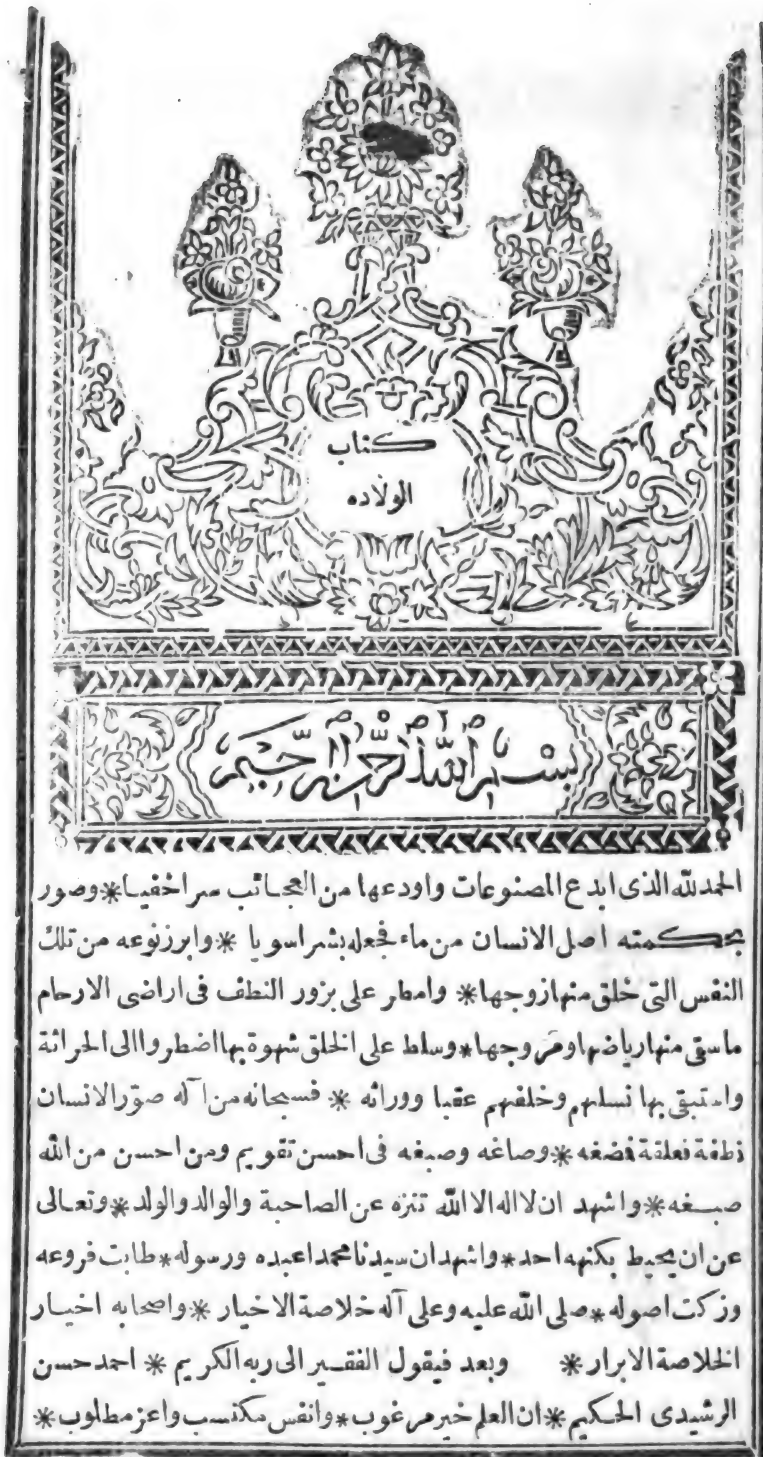 كتاب
الولاده
بسم الله الرحمن الرحيم
الحمد لله الذى ابدع المصنوعات واودعها من العجائب سرا خفيا * وصور
بحكمته اصل الانسان من ماء فجعله بشرا سويا * وابرز نوعه من تلك
النفس التى خلق منها زوجها * وامطر على بزور النطف فى اراضى الارحام
ماسقى منها رياضها ومروجها * وسلط على الخلق شهوة بها اضطروا الى الحراثة
واستبقى بها نسلهم وخلفهم عقبا ووراثه * فسبحانه من اله صوّر الانسان
نطفة فعلقة فمضغه * وصاغه وصبغه فى احسن تقويم ومن احسن من الله
صبغه * واشهد ان لااله الا الله تنزه عن الصاحبة والوالد والولد * وتعالى
عن ان يحيط بكنهه احد * واشهد ان سيدنا محمدا عبده ورسوله * طابت فروعه
وزكت اصوله * صلى الله عليه وعلى آله خلاصة الاخيار * واصحابه اخيار
الخلاصة الابرار * وبعد فيقول الفقير الى ربه الكريم * احمد حسن
الرشيدى الحكيم * ان العلم خير مرغوب * وانفس مكتسب واعز مطلوب *